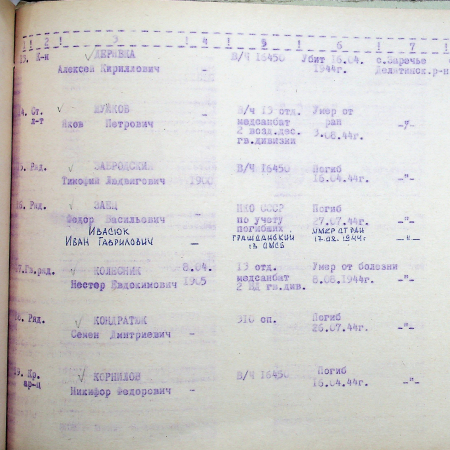 1 2 3 4 5 6 7
К-н ДЕРЕВКА В/Ч 16450 Убит 16.04. с.Заречье
Алексей Кириллович - 1944г. Делятинск.р-н
Ст. ЖУЙКОВ В/ч 13 отд. Умер от
л-т Яков Петрович - медсанбат ран -"-
2 возд.дес. 3.08.44г.
гв.дивизии
Рад. В/Ч 16450 Погиб
Тимофей 1900 16.04.44г. -"-
Рад. ЗАЕЦ НКО СССР Погиб
Федор Васильевич - по учету 27.07.44г. -"-
погибших
ИВАСЮК ГРАЖДАНСКИЙ УМЕР ОТ РАН
ИВАН ГАВРИЛОВИЧ - 13 ОМСБ 17.08.1944г -"-
Гв.ряд. КОЛЕСНИК 8.04. 13 отд. Умер от болезни
Нестер Евдокимович 1905 медсанбат 8.08.1944г. -"-
2 ВД гв.див.
Ряд. КОНДРАТЮК 310 сп. Погиб
Семен Дмитриевич - 26.07.44г. -"-
19. Кр. КОРНИЛОВ В/Ч 16450 Погиб
ар-ц Никифор Федорович - 16.04.44г. -"-